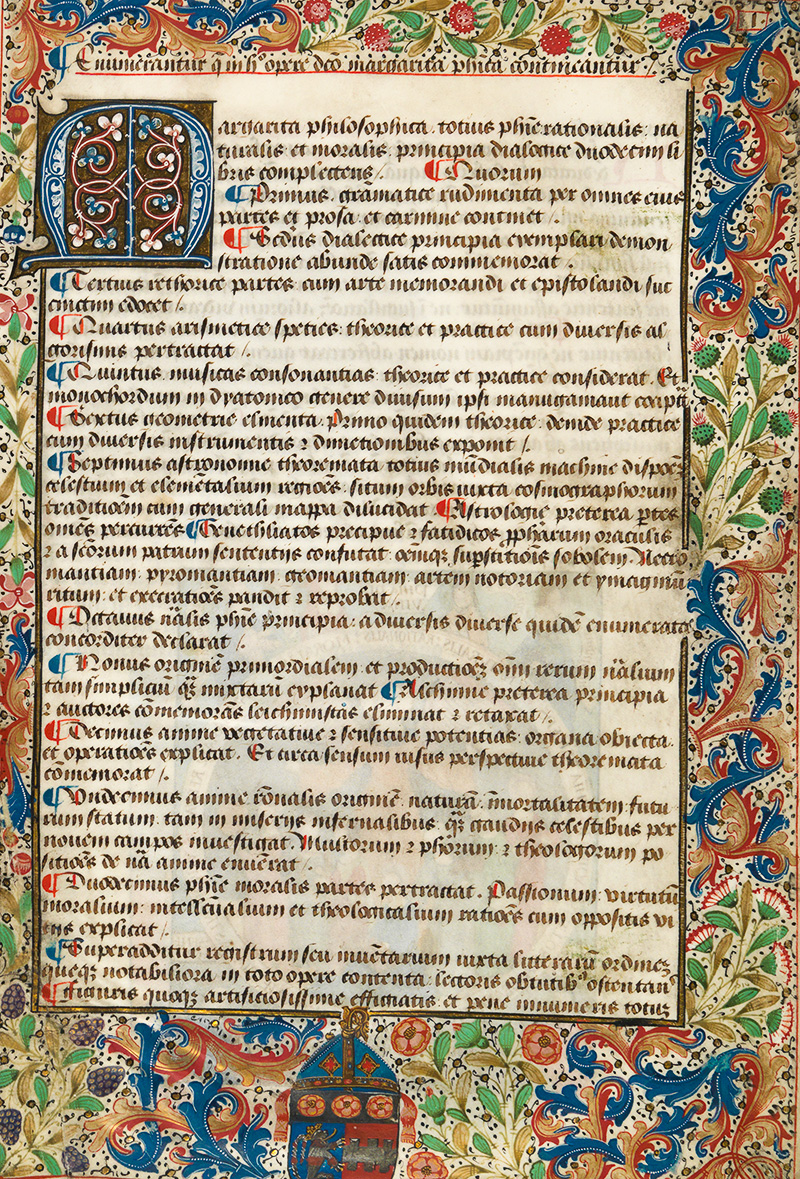 Enumerantur q̄ in hͦ opere dco margarita phīca contineantur /.
Margarita philosophica totius phīe rationalis: na
turalis et moralis principia dialogice duodecim li
bris complectens /. Quorum
Primus gramatice rudimenta per omnes eius
partes et prosa et carmine continet /.
Secd̄us dialectice principia exemplari demon
stratione abunde satis commemorat .
Tertius rethorice partes cum arte memorandi et epistolandi suc
cinctim edocet /.
Quartus arismetice species theorice et practice cum diversis al
gorismis pertractat /.
Quintus musicas consonantias theorice et practice considerat. Et
monochordum in dyatomico genere divisum ipsi
Sextus geometrie elmenta. Primo quidem theorice deinde practice
cum diversis instrumentis ⁊ dimetionibus exponit /.
Septimus astronomie theoremata totius mūdialis machine
celestium et elemētalium regiōes situm orbis iuxta cosmographorum
traditiōem cum generali mappa dilucidat. Astrologie preterea ꝑtes
om̄es percurrēs Genethliatos precipue ⁊ fatidicos ꝓpharum oraculis
⁊ a seorum patrum sententiis confutat oēmqꝫ supstitiōis sobolem. Necro
mantiam pyromantiam geomantiam artem notoriam et ymaginū
ritum et execratiōes pandit ⁊ reprobat /.
Octauus nālis phīe principia a diversis diverse quidē enumerata
concorditer declarat /.
Nonus originē primordialem et productiōeꝫ om̄i rerum nālium
tam simplicium qꝫ mixtarū explanat Alchimie preterea principia
⁊ auctores cōmemorās leichimistas eliminat ⁊ retaxat /.
Decimus anime vegetative ⁊ sensitive potentias organa obiecta
et operatiōes explicat. Et circa sensum visus perspective theoremata
cōmemorat /.
Undecimus anime rōnalis originē naturā īmortalitatem futu
rum statum tam in miseriis infernalibus qꝫ gaudiis celestibus per
novem campos investigat. ⁊ phōrum ⁊ theologorum po
sitiōes de nā anime enuērat /.
Duodecimus phīe moralis partes pertractat. Passionum virtutū
moralium intellectualium et theologicalium ratiōes cum oppositis vi
tiis explicat /.
Superadditur registrum seu inventarium iuxta litterarū ordineꝫ
queqꝫ notabiliora in toto opere contenta lectoris obtutibͦ ostentans
figuris quoqꝫ artificiosissime effigiatis et pene innumeris totus